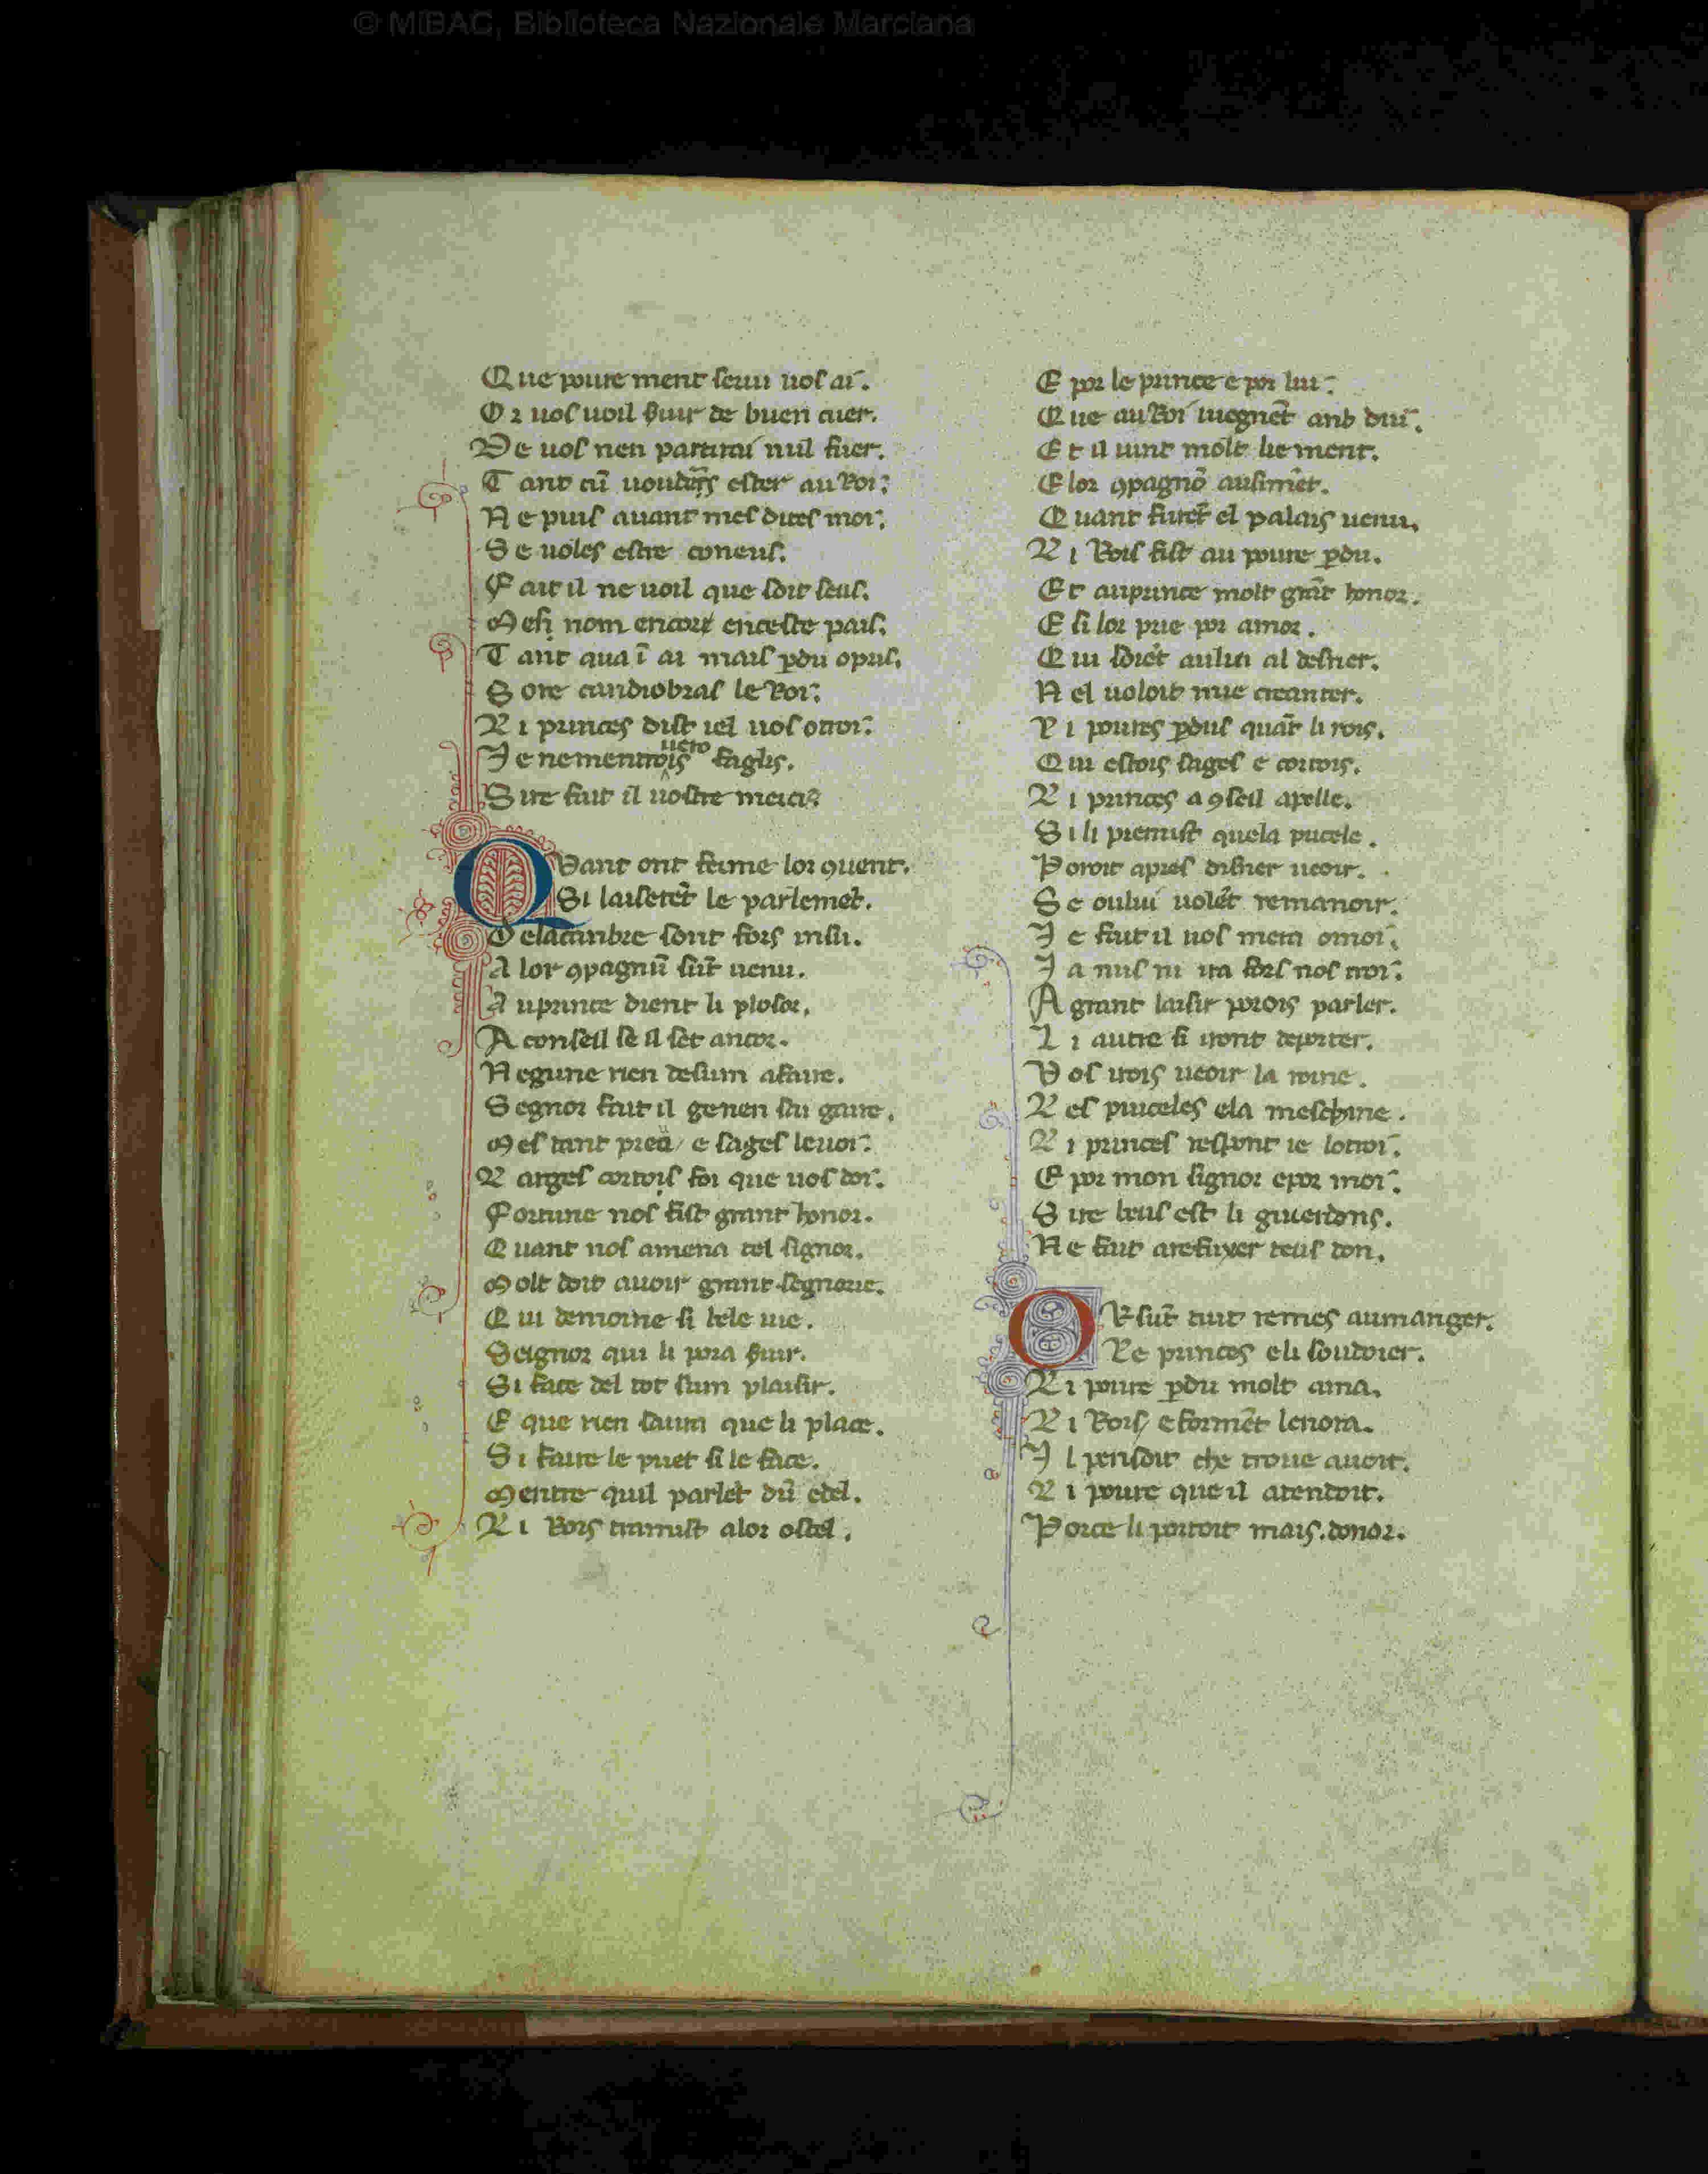 © MiBAC, Biblioteca Nazionale Marciana
Que poure ment serui uos ai.
Or uos uoil seruir de buen cuer.
De uos nen partirai nul fuer.
Tant cū uoudrés ester au Roi.
Ne puis auant mes dites moi.
Se uoles estre coneus.
Fait il ne uoil que soit seus.
Mesi nom encore enceste pais.
Tant qua ī ai mais ꝑdu opus.
Sore candiobras le Roi.
Li princes dist iel uos otroi.
Je nementrois uero faglis.
Sire fait il uostre mercis
Quant ont ferme lor ꝯuent.
Si laiseret̄ le parlemēt.
De lacambre sont fors insu.
A lor ꝯpagnū sūt uenu.
A uprince dient li plosor.
A conseil se il set ancor.
Negune rien desum afaire.
Segnor fait il genen sai gaire.
Mes tant preu e sages leuoi.
Larges cortois foi que uos doi.
Fortune nos fist grant honor.
Quant nos amena tel signor.
Molt doit auoir grant segnorie.
Qui demoine si bele uie.
Seignor qui li pora seruir.
Si face del tot sum plaisir.
E que rien saura que li place.
Si faire le puet si le face.
Mentre quil parlēt dū edel.
Li Rois tramist alor ostel.
E por le prince e por lui.
Que au Roi uiegnēt anb dui.
Et il uint molt lie ment.
E lor ꝯpagnō ausimēt.
Quant furēt el palais uenu.
Li Rois fist au poure ꝑdu.
Et auprince molt grāt honor.
E si lor prie por amor.
Qui soiēt aului al desner.
Nel uoloit mie creanter.
Li poures ꝑdus quāt li rois.
Qui estois sages e cortois.
Li princes a ꝯseil apelle.
Si li premist quela pucele.
Poroit apres disner ueoir.
Se oului uolēt remanoir.
Je fait il uos metra omoi.
Ja nus ni ira fors nos troi.
A grant laisir porois parler.
Li autre si iront deporter.
Vos irois ueoir la roine.
Les pucceles ela meschine.
Li princes respont ie lotroi.
E por mon signor epor moi.
Sire beus est li guierdons.
Ne fait arefuxer teus don.
Or sūt tuit remes aumanger.
Le princes eli soudoier.
Li poure ꝑdu molt ama.
Li Rois e formēt lenora.
Il pensoit che troue auoit.
Li poure que il atendoit.
Porce li portoit mais donor.